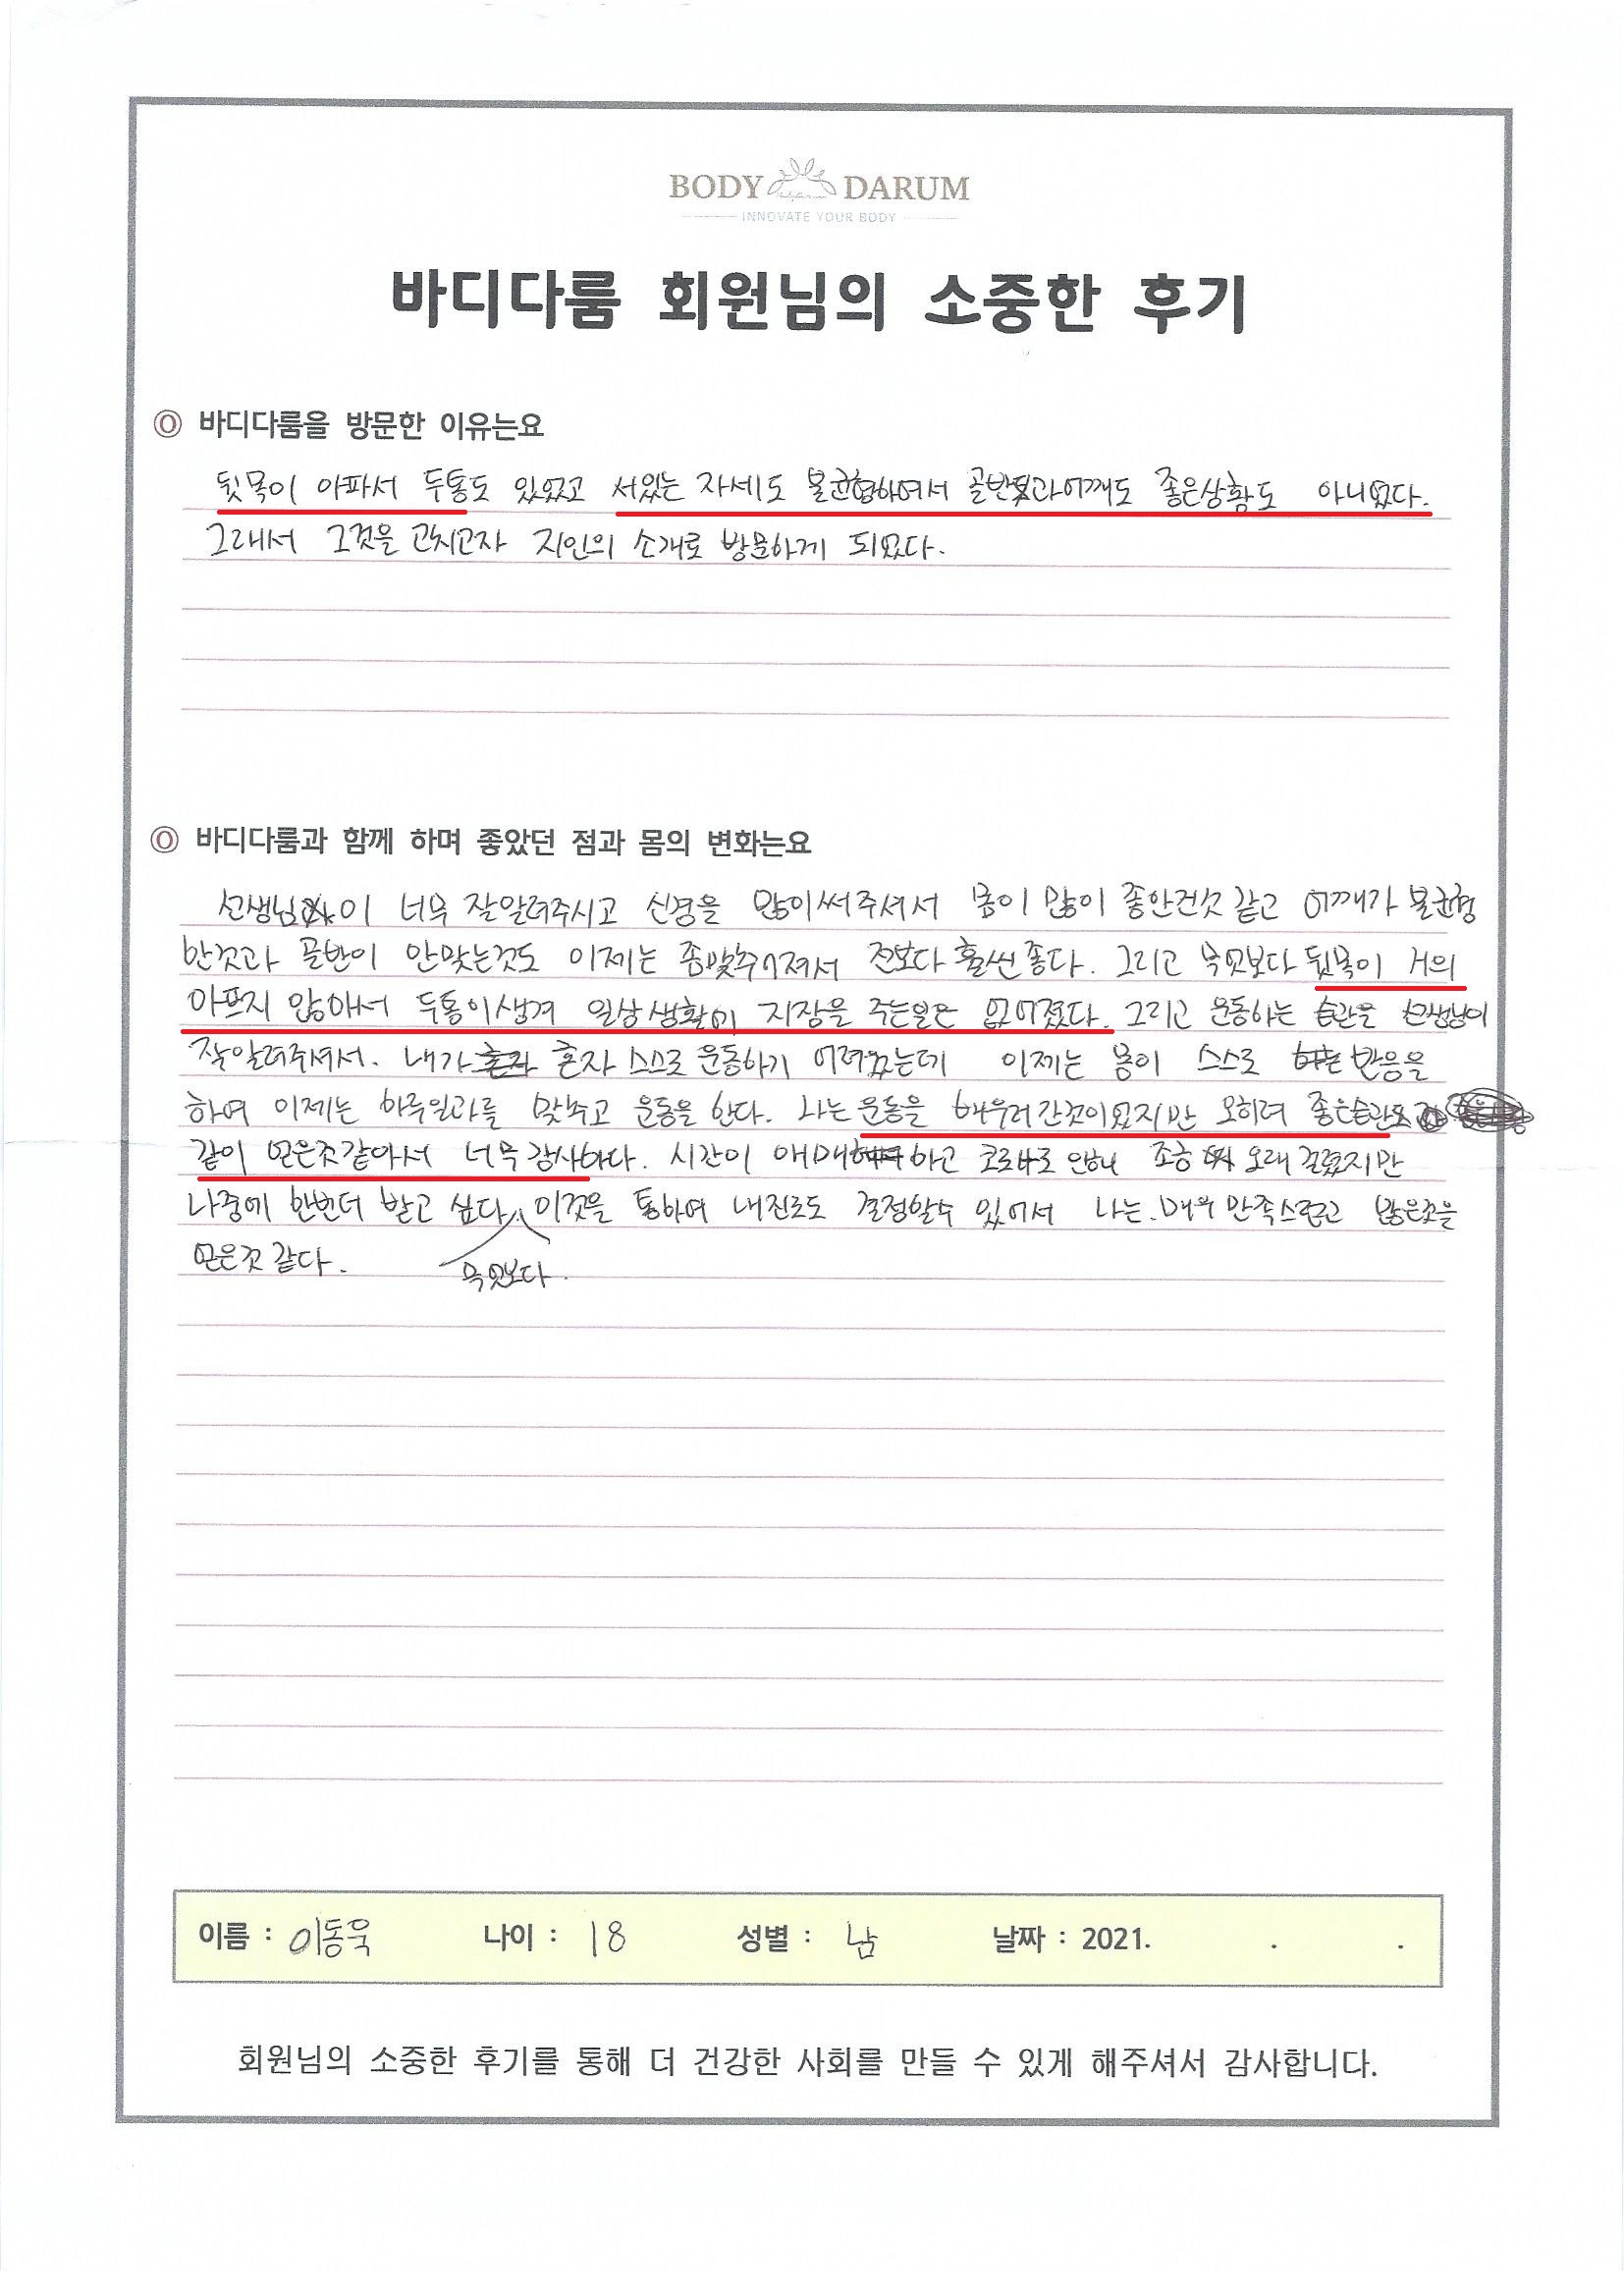 BODY DARUM
INNOVATE YOUR BODY
바디다룸 회원님의 소중한 후기
바디다룸을 방문한 이유는요
뒷목이 아파서 두통도 있었고 서있는 자세도 불균형하여서 골반과어깨도 좋은상황도 아니였다.
그래서 그것을 고치고자 지인의 소개로 방문하게 되었다.
바디다룸과 함께 하며 좋았던 점과 몸의 변화는요
선생님이 너무 잘알려주시고 신경을 많이써주셔서 몸이 많이 좋안건것 같고 어깨가 불균형
한것과 골반이 안맞는것도 이제는 좀맞추어져서 전보다 훨씬좋다. 그리고 무엇보다 뒷목이 거의
아프지 않아서 두통이생겨 일상생활에 지장을 주는일은 없어졌다. 그리고 운동하는 습관을 선생님이
잘알려주셔서. 내가 혼자 스스로 운동하기 어려웠는데 이제는 몸이 스스로 반응을
하여 이제는 하루일과를 맞추고 운동을 한다. 나는 운동을 배우러간것이였지만 오히려 좋은습관도
같이 얻은것같아서 너무 감사하다. 시간이 애매하고 코로나로 인해 조금 오래 걸렸지만
나중에 한번더 받고 싶다. 이것을 통하여 내진로도 결정할수 있어서 나는. 매우 만족스럽고 많은것을
얻은것 같다. 무엇보다.
이름 : 이동욱 나이 : 18 성별 : 남 날짜 : 2021. . .
회원님의 소중한 후기를 통해 더 건강한 사회를 만들 수 있게 해주셔서 감사합니다.